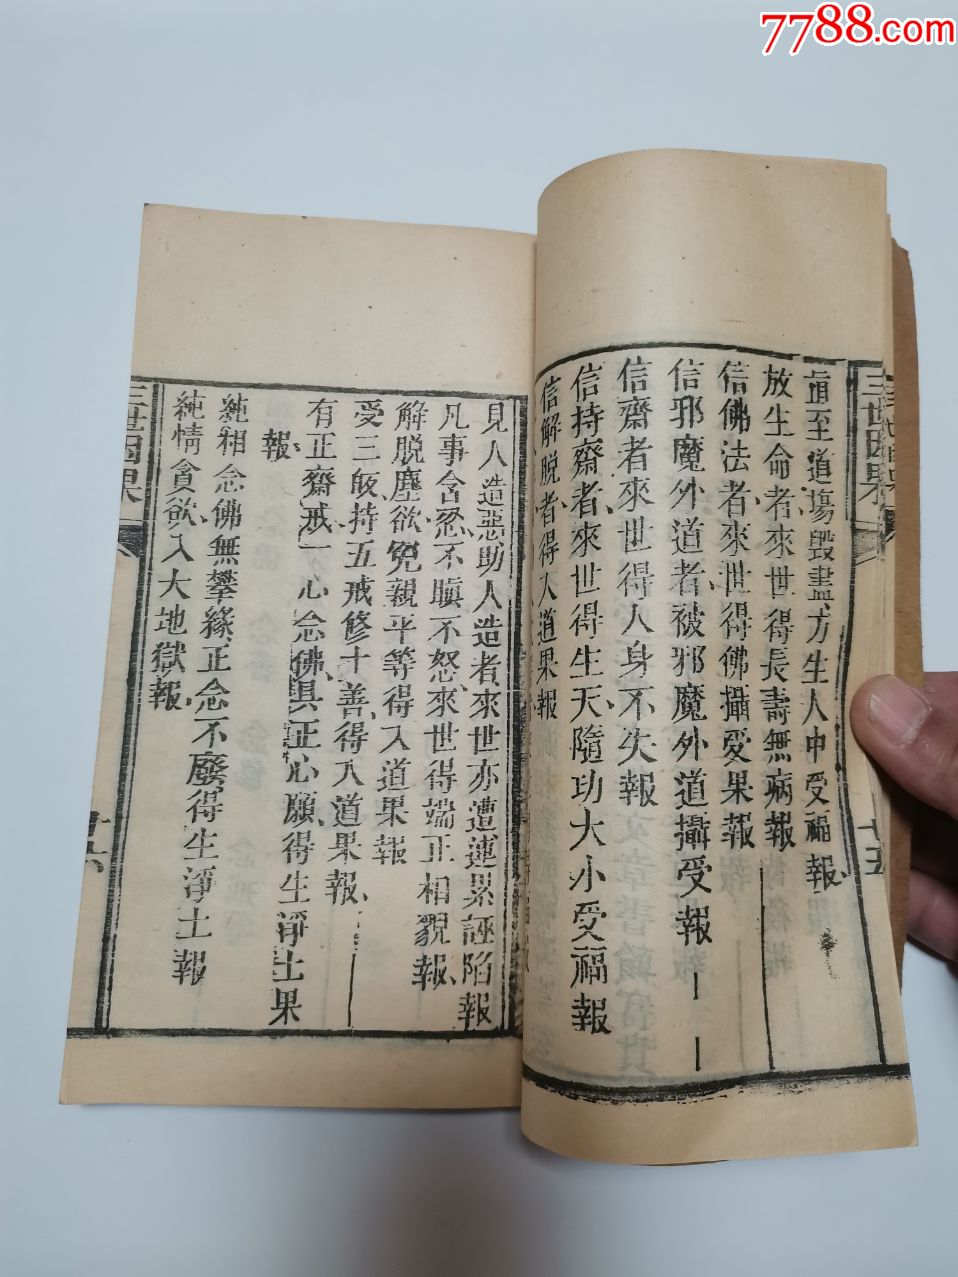 7788.com
三世因果
十五
直至道場毀盡方生人中受福報
放生命者來世得長壽無病報
信佛法者來世得佛攝受果報
信邪魔外道者被邪魔外道攝受報
信齋者來世得人身不失報
信持齋者來世得生天隨功大小受福報
信解脫者得入道果報
見人造惡助人造者來世亦遭連累誣陷報
凡事含忍不瞋不怒來世得端正相貌報
解脫塵欲冤親平等得入道果報
受三皈持五戒修十善得入道果報
有正齋戒一心念佛具正心願得生淨土果
報
純相念佛無攀緣正念不廢得生淨土報
純情貪欲入大地獄報
三世因果
十六